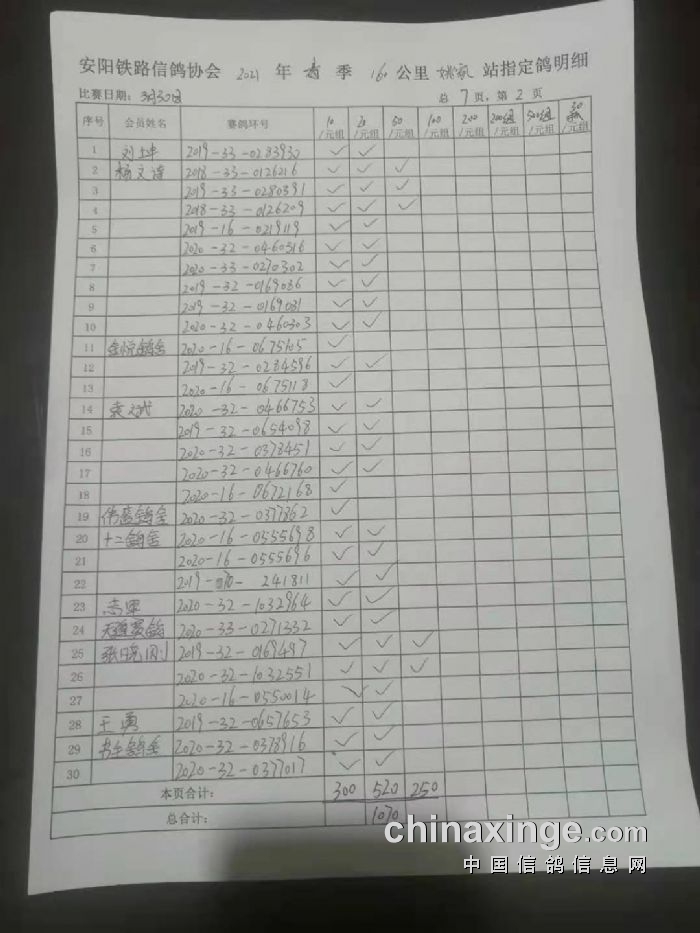 安阳铁路信鸽协会 2021 年 春 季 160 公里 姚家 站指定鸽明细
比赛日期: 3月30日 总 7 页, 第 2 页
序号 会员姓名 赛鸽环号 10/元组 20/元组 50/元组 100/元组 200/元组 200组/元组 500组/元组 30/元组
1 2019-33-0283930 ✓ ✓
2 杨文涛 2018-33-0126216 ✓ ✓ ✓
3 2019-33-0280391 ✓ ✓ ✓
4 2018-33-0126209 ✓ ✓ ✓
5 2019-16-0219119 ✓ ✓
6 2020-32-0460316 ✓ ✓
7 2020-33-0270302 ✓ ✓
8 2019-32-0169036 ✓ ✓
9 2019-32-0169031 ✓ ✓
10 2020-32-0460303 ✓ ✓
11 金悦鸽舍 2020-16-0675105 ✓
12 2019-32-0284596 ✓ ✓
13 2020-16-0675118 ✓
14 袁文斌 2020-32-0466753 ✓ ✓
15 2019-32-0654098 ✓ ✓
16 2020-32-0378451 ✓ ✓
17 2020-32-0466760 ✓ ✓
18 2020-16-0672168 ✓
19 2020-32-0377362 ✓
20 十二鸽舍 2020-16-0555698 ✓ ✓
21 2020-16-0555696 ✓ ✓
22 2019- - 241811 ✓ ✓
23 志军 2020-32-1032964 ✓ ✓
24 2020-33-0271332 ✓ ✓
25 张晓刚 2019-32-0169497 ✓ ✓ ✓
26 2020-32-1032551 ✓ ✓ ✓
27 2020-16-0550014 ✓ ✓
28 王勇 2019-32-0657653 ✓ ✓
29 2020-32-0378916 ✓ ✓
30 2020-32-0377017 ✓ ✓
本页合计: 300 520 250
总合计: 1070
chinaxinge.com
中国信鸽信息网